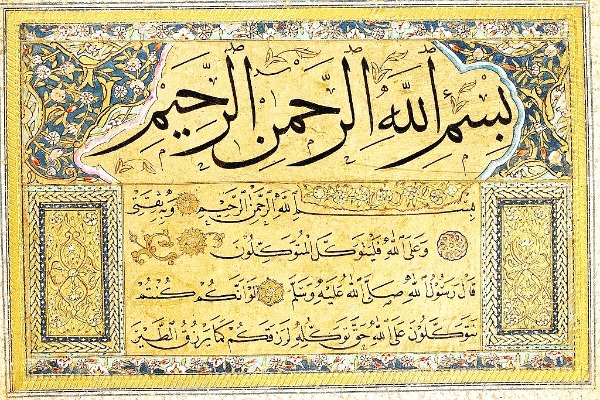 بِسْمِ اللهِ الرَّحْمٰنِ الرَّحِيْمِ
بِسْمِ اللهِ الرَّحْمٰنِ الرَّحِيْمِ وَبِهِ ثِقَتِي
وَعَلَى اللهِ فَلْيَتَوَكَّلِ الْمُتَوَكِّلُونَ
قَالَ رَسُولُ اللهِ صَلَّى اللهُ عَلَيْهِ وَسَلَّمَ لَوْ اَنَّكُمْ كُنْتُمْ
تَتَوَكَّلُونَ عَلَى اللهِ حَقَّ تَوَكُّلِهِ لَرَزَقَكُمْ كَمَا يَرْزُقُ الطَّيْرَ